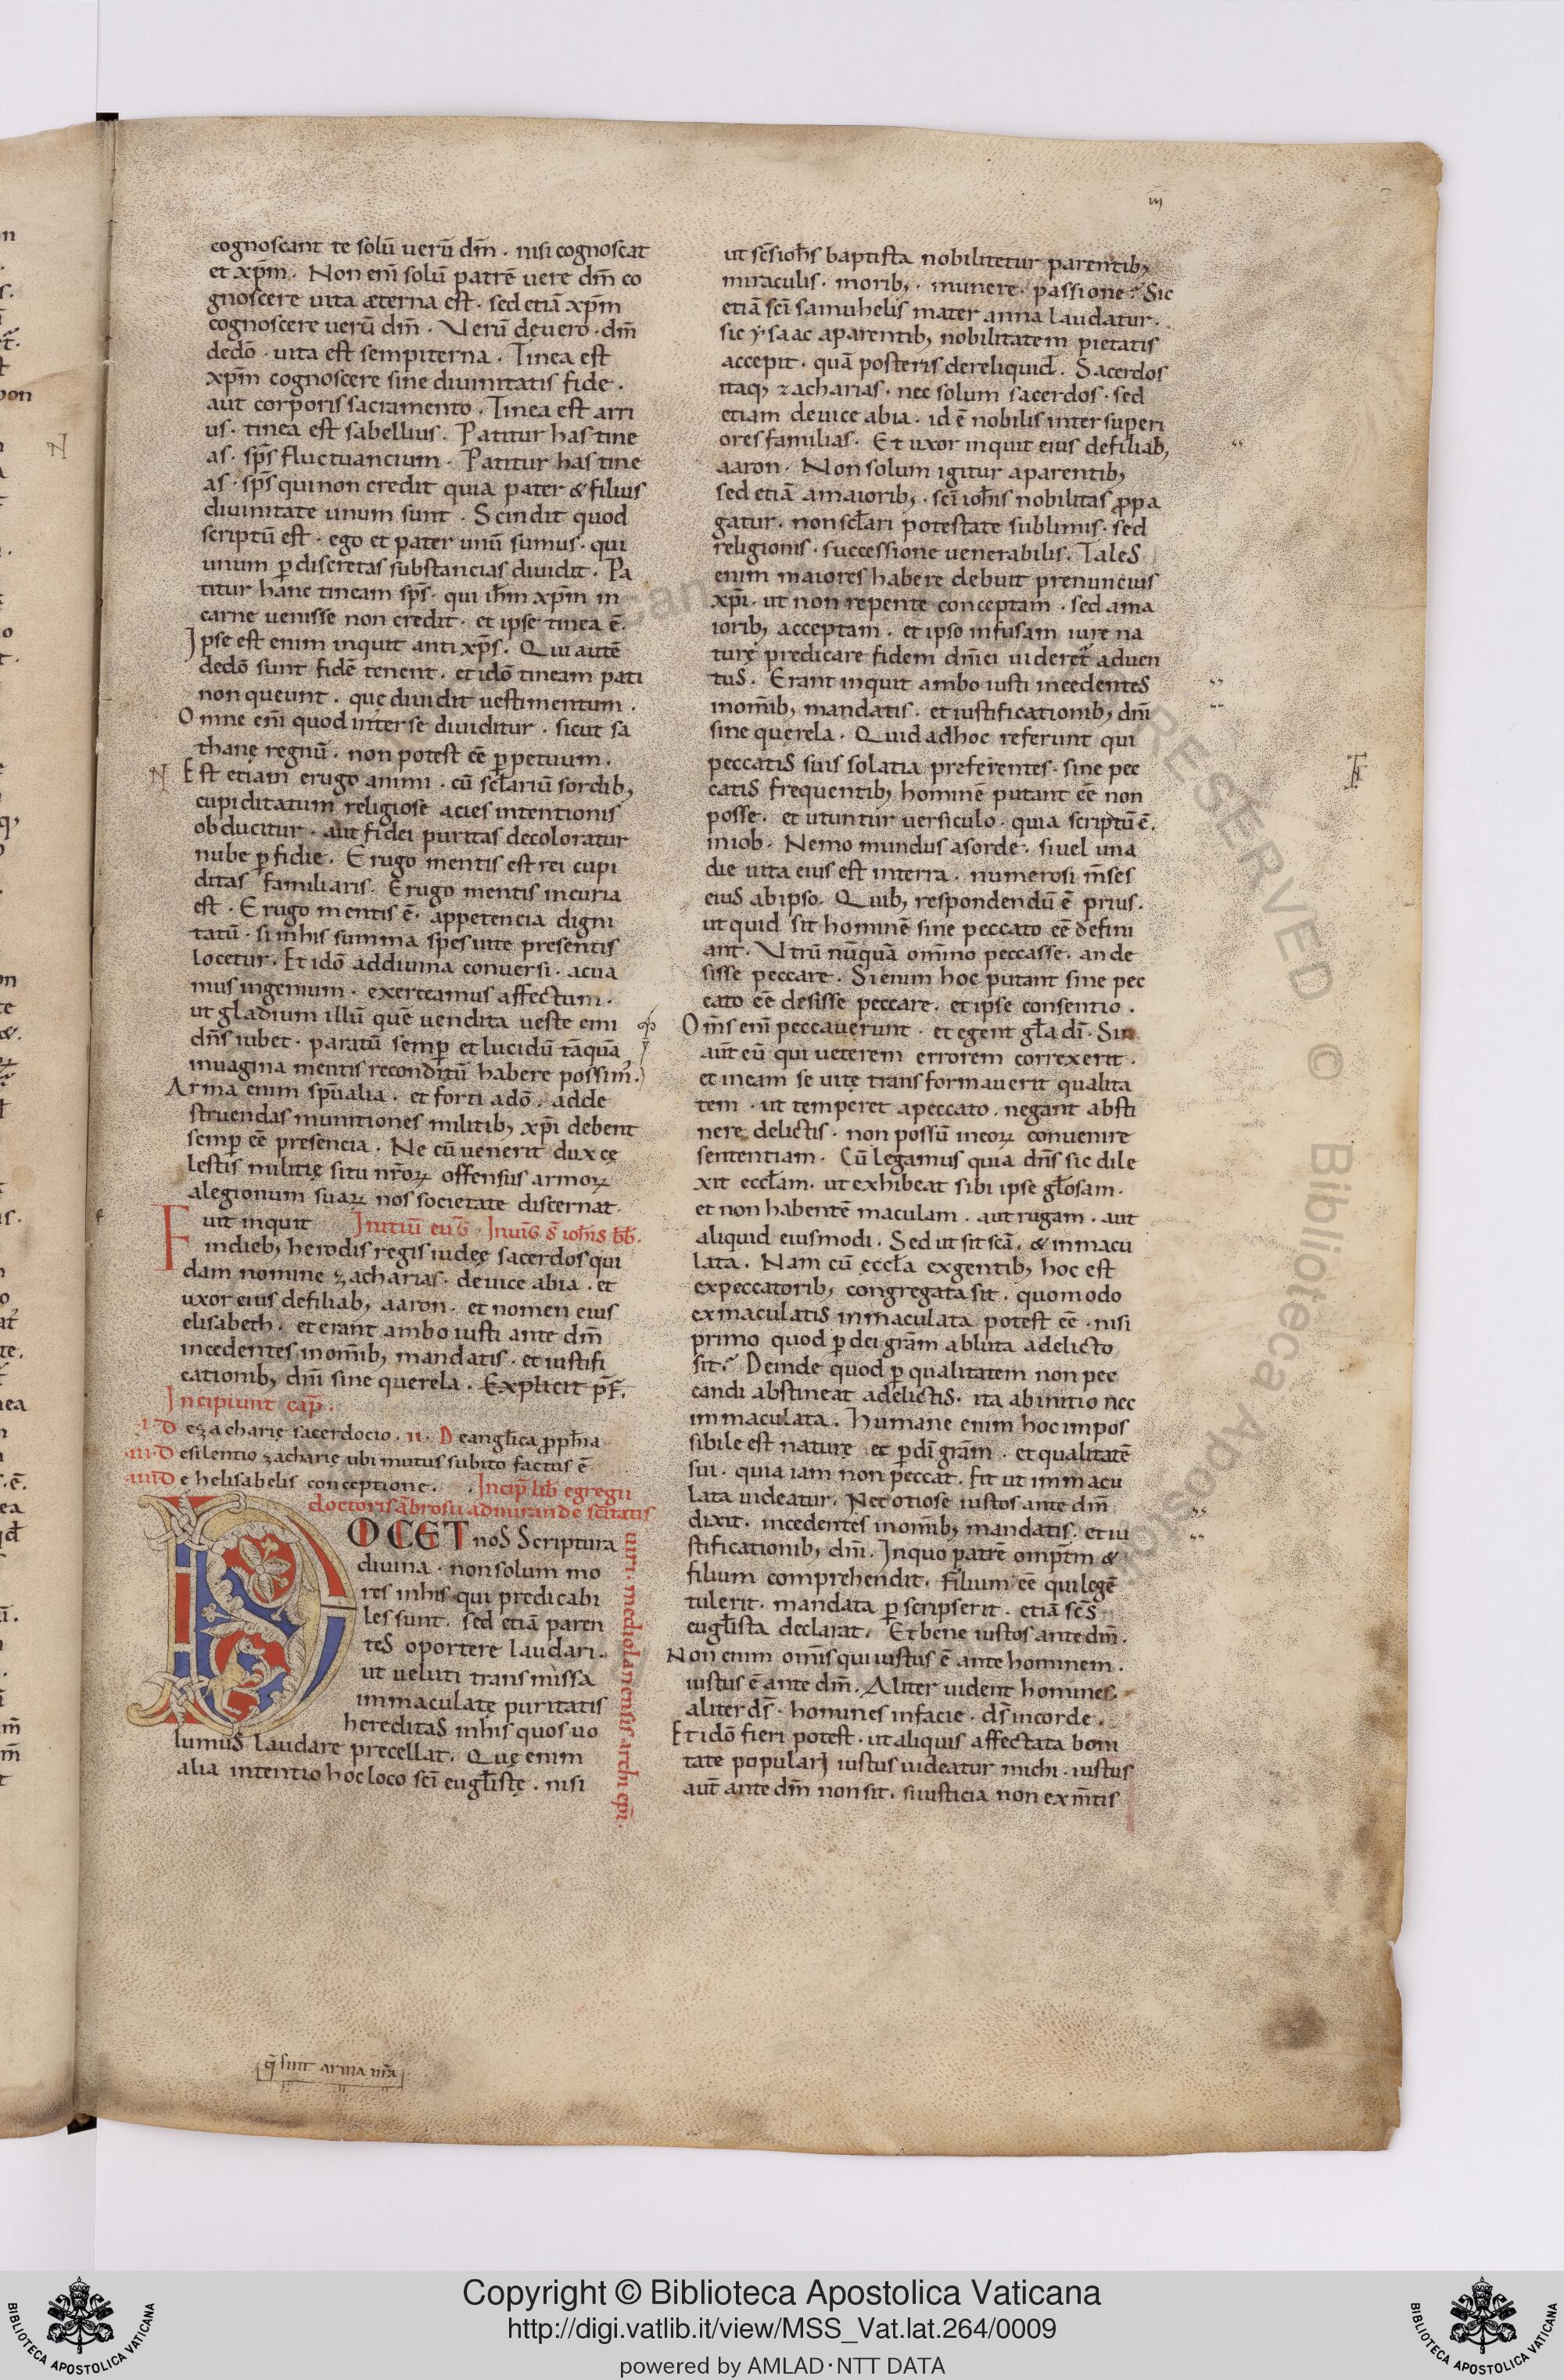 ııȷ
cognoscant te solū uerū dm̄ . nisi cognoscat
et xp̄m . Non eni̅ solū patrē uere dm̄ co
gnoscere uita æterna est . sed etiā xp̄m
cognoscere uerū dm̄ . Verū deuero . dm̄
dedō . uita est sempiterna . Tinea est
xp̄m cognoscere sine diuinitatis fide .
aut corporis sacramento . Tinea est arri
us . tinea est sabellius . Patitur has tine
as . sp̄s fluctuancium . Patitur has tine
as . sp̄s qui non credit quia pater & filius
diuinitate unum sunt . Scindit quod
scriptū est . ego et pater unū sumus . qui
unum p̱ discretas substancias diuidit . Pa
titur hanc tineam sp̄s . qui ih̄m xp̄m in
carne uenisse non credit . et ipse tinea ē .
Ipse est enim inquit anti xp̄s . Qui autē
dedō sunt fidē tenent . et idō tineam pati
non queunt . quę diuidit uestimentum .
Omne eni̅ quod inter se diuiditur . sicut sa
thanę regnū . non potest eē p̱petuum .
Est etiam erugo animi . cū scl̄ariū sordib;
cupiditatum religiose acies intentionis
obducitur . aut fidei puritas decoloratur
nube p̱fidie . Erugo mentis est rei cupi
ditas familiaris . Erugo mentis incuria
est . Erugo mentis ē . appetencia digni
tatū . si in his summa spes uite presentis
locetur . Et idō ad diuina conuersi . acua
mus ingenium . exerceamus affectum .
ut gladium illū quē uendita ueste emi
dn̄s iubet . paratū semp̱ et lucidū tāquā
inuagina mentis reconditū habere possim .
Arma enim sp̄ualia . et forti adō . adde
struendas munitiones militib; xp̄i debent
semp̱ eē presencia . Ne cū uenerit dux cę
lestis militię situ nr̄oꝝ offensus armoꝝ
alegionum suaꝝ nos societate discernat .
Fuit inquit Initiū eug̅ . Inuig̅ s̄ ioh̄is bb̄ .
indieb; herodis regis iudeę sacerdos qui
dam nomine zacharias . de uice abia . et
uxor eius defiliab; aaron . et nomen eius
elisabeth . et erant ambo iusti ante dm̄
incedentes inom̄ib; mandatis . et iustifi
cationib; dm̄i sine querela . Explicit pf̄ .
Incipiunt cap̄ .
.ı. De zacharie sacerdocio . ıı . De angl̄ica p̱ph̄ia
.ııı. De silentio zacharię ubi mutus subito factus ē
.ıııı. De helisabelis conceptione . . Incip̱ lib̄ egregii
doctoris ābrosii admirande sc̄itatis
uiri . mediolanensis archi ep̄i .
DOCET nos Scriptura
diuina . non solum mo
res in his qui predicabi
les sunt . sed etiā paren
tes oportere laudari .
ut ueluti transmissa
immaculatę puritatis
hereditas in his quos uo
lumus laudare precellat . Quę enim
alia intentio hoc loco sc̄i eugl̄istę . nisi
ut sc̄s ioh̄s baptista nobilitetur parentib;
miraculis . morib; . munere . passione . Sic
etiā sc̄i samuhelis mater anna laudatur .
sic ysaac aparentib; nobilitatem pietatis
accepit . quā posteris dereliquid . Sacerdos
itaq; zacharias . nec solum sacerdos . sed
etiam de uice abia . id ē nobilis inter superi
ores familias . Et uxor inquit eius defiliab;
aaron . Non solum igitur aparentib;
sed etiā amaiorib; . sc̄i ioh̄is nobilitas ꝓpa
gatur . non scl̄ari potestate sublimis . sed
religionis . successione uenerabilis . Tales
enim maiores habere debuit prenuncius
xp̄i . ut non repente conceptam . sed ama
iorib; acceptam . et ipso infusam iure na
turę predicare fidem dn̄ici uideret aduen
tus . Erant inquit ambo iusti incedentes
inom̄ib; mandatis . et iustificationib; dm̄i
sine querela . Quid adhoc referunt qui
peccatis suis solatia preferentes . sine pec
catis frequentib; hominē putant eē non
posse . et utuntur uersiculo . quia scriptū ē .
iniob . Nemo mundus asorde . si uel una
die uita eius est interra . numerosi m̄ses
eius abipso . Quib; respondendū ē prius .
ut quid sit hominē sine peccato eē defini
ant . Vtrū nūquā om̄ino peccasse . an de
sisse peccare . Si enim hoc putant sine pec
cato eē desisse peccare . et ipse consentio .
Om̄s eni̅ peccauerunt . et egent gl̄a dī . Sin
aut̄ eū qui ueterem errorem correxerit .
et ineam se uitę transformauerit qualita
tem . ut temperet apeccato . negant absti
nere delictis . non possū ineoꝝ conuenire
sententiam . Cū legamus quia dn̄s sic dile
xit eccl̄am . ut exhibeat sibi ipse gl̄osam .
et non habentē maculam . aut rugam . aut
aliquid eiusmodi . Sed ut sit sc̄a . & inmacu
lata . Nam cū eccl̄a exgentib; hoc est
expeccatorib; congregata sit . quomodo
exmaculatis inmaculata potest eē . nisi
primo quod p̱ dei grām abluta adelicto
sit . Deinde quod p̱ qualitatem non pec
candi abstineat adelictis . ita abinitio nec
immaculata . Humane enim hoc impos
sibile est naturę et p̱ dī grām . et qualitatē
sui . quia iam non peccat . fit ut immacu
lata uideatur . Nec otiose iustos ante dm̄
dixit . incedentes inom̄ib; mandatis . et iu
stificationib; dm̄i . Inquo patrē omp̄tm &
filium comprehendit . Filium eē qui legē
tulerit . mandata p̱scripserit . etiā sc̄s
eugl̄ista declarat . Et bene iustos ante dm̄ .
Non enim om̄is qui iustus ē ante hominem .
iustus ē ante dm̄ . Aliter uident homines .
aliter ds̄ . homines infacie . ds̄ incorde .
Et idō fieri potest . ut aliquis affectata boni
tate populari iustus uideatur michi . iustus
aut̄ ante dm̄ non sit . si iusticia non exm̄tis
q̄ sunt arma nr̄a
Copyright © Biblioteca Apostolica Vaticana
http://digi.vatlib.it/view/MSS_Vat.lat.264/0009
powered by AMLAD·NTT DATA
BIBLIOTECA APOSTOLICA VATICANA
BIBLIOTECA APOSTOLICA VATICANA